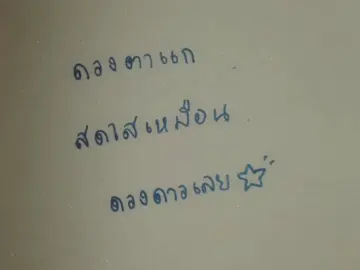 ดวงตาแก
สดาสเหมือน
ดวงดาวเลย